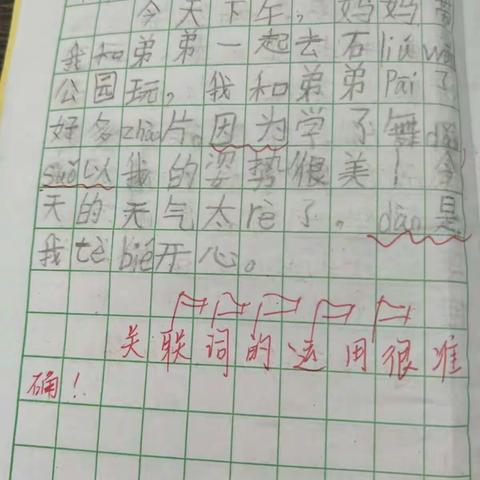 今天下午，妈妈带
我和弟弟一起去石liú wǔ
公园玩，我和弟弟Pāi了
好多zhào片。因为学了舞dǎo
suǒ以我的姿势很美！今
天的天气太rè了。dàn是
我tè bié开心。
关联词的运用很准
确！